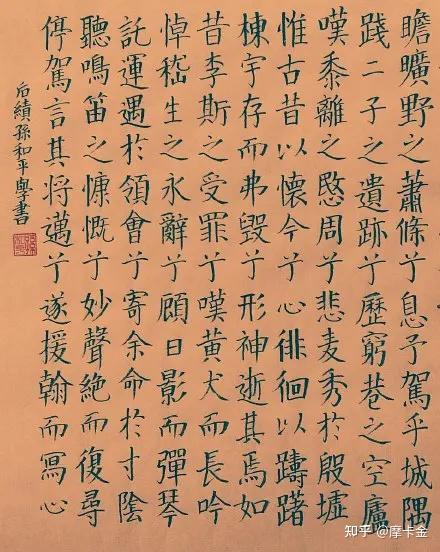 瞻曠野之蕭條兮息予駕乎城隅
踐二子之遺跡兮歷窮巷之空廬
嘆黍離之愍周兮悲麦秀於殷墟
惟古昔以懷今兮心徘徊以躊躇
棟宇存而弗毀兮形神逝其焉如
昔李斯之受罪兮嘆黃犬而長吟
悼嵇生之永辭兮顧日影而彈琴
託運遇於領會兮寄余命於寸陰
聽鳴笛之慷慨兮妙聲絕而復尋
停駕言其將邁兮遂援翰而寫心
后績孫和平學書
知乎 @摩卡金